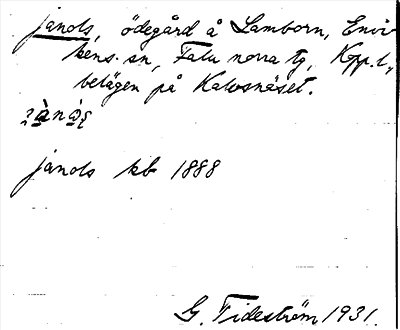 janols, ödegård å Lamborn, Envi
kens sn, Falu norra tg, Kopp. l.,
belägen på Kalvsnäset.
janols kb 1888
G. Tideström 1931.